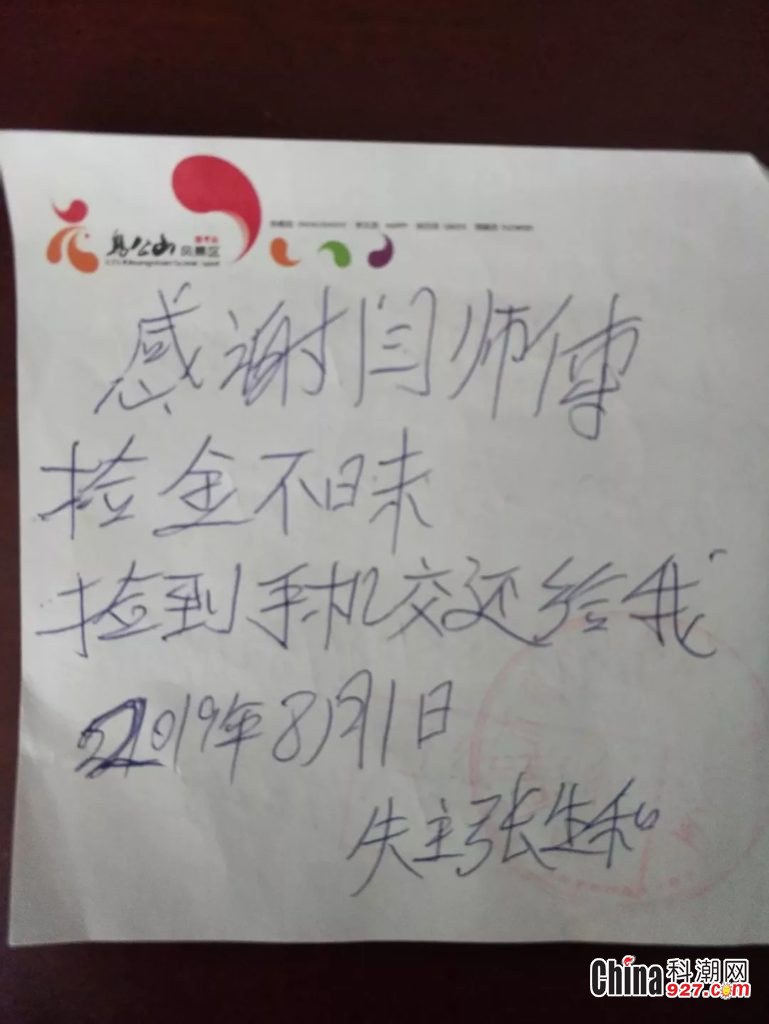 鸡公山
风景区
感谢闫师傅
捡金不昧
捡到手机交还给我
2019年8月1日
失主张生和
China科潮网
927.com